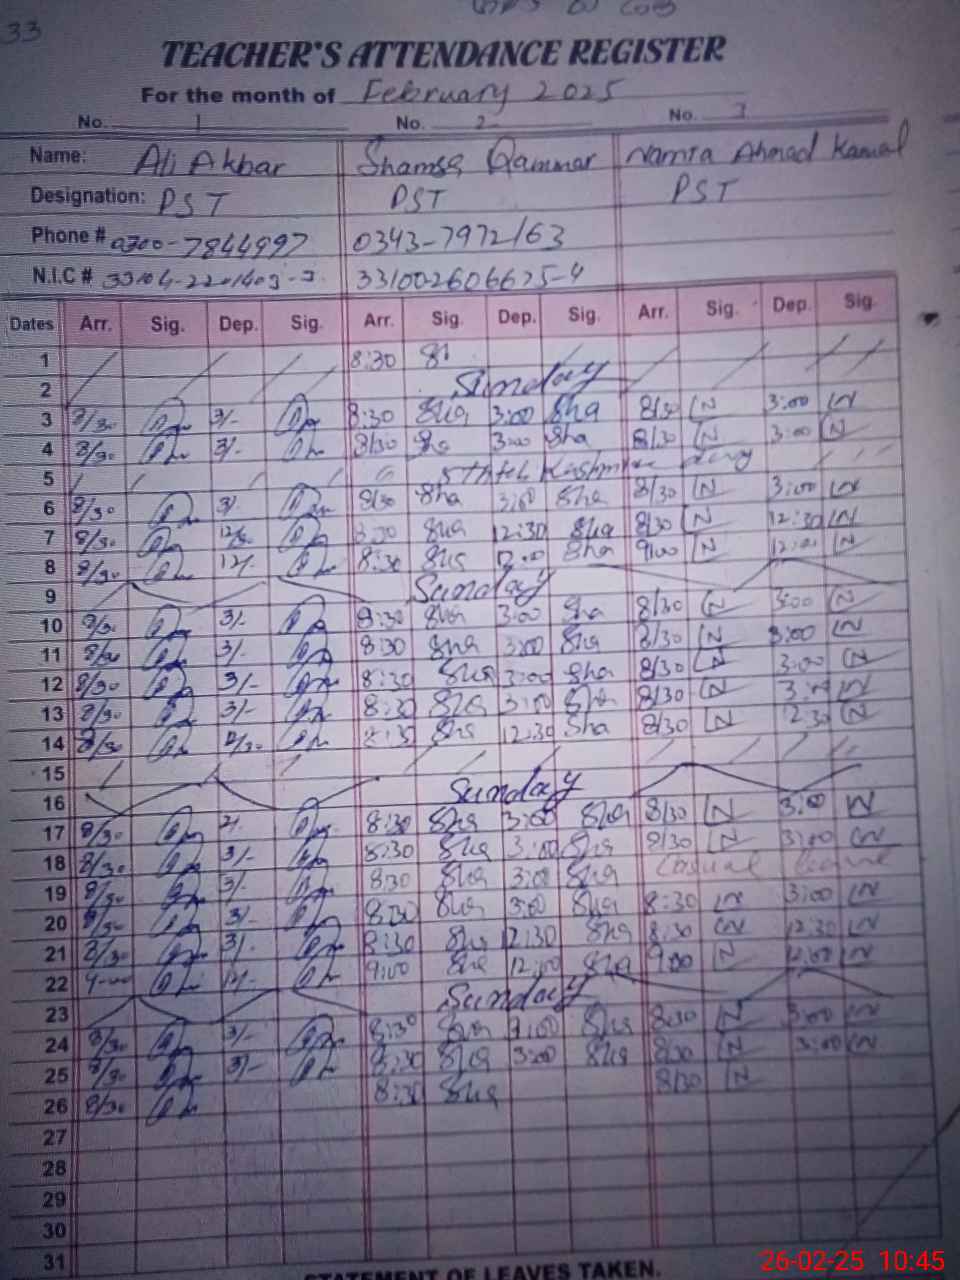 33
TEACHER'S ATTENDANCE REGISTER
For the month of February 2025
No. 1 No. 2 No. 3
Name: Ali Akbar Shamsa Qammar Namra Ahmad Kamal
Designation: PST PST PST
Phone # 0300-7844997 0343-7972163
N.I.C # 331002606625-4
Dates Arr. Sig. Dep. Sig. Arr. Sig. Dep. Sig. Arr. Sig. Dep. Sig.
1 8:30
2 Sunday
3 8/30 3/- 8:30 Sha 3:00 Sha 8/30 N 3:00 N
4 8/30 3/- 8/30 Sha 3:00 Sha 8/30 N 3:00 N
5 Kashmir day
6 8/30 3/- 8/30 Sha 3:00 Sha 8/30 N 3:00 N
7 8/30 12/30 8:30 Sha 12:30 Sha 8/30 N 12:30 N
8 8/30 12/- 8:30 Sha 12:00 Sha 9:00 N 12:00 N
9 Sunday
10 8/30 3/- 8:30 Sha 3:00 Sha 8/30 N 3:00 N
11 8/30 3/- 8:30 Sha 3:00 Sha 8/30 N 3:00 N
12 8/30 3/- 8:30 Sha 3:00 Sha 8/30 N 3:00 N
13 8/30 3/- 8:30 Sha 3:00 Sha 8/30 N 3:00 N
14 8/30 12/30 8:30 Sha 12:30 Sha 8/30 N 12:30 N
15
16 Sunday
17 8/30 8:30 Sha 3:00 Sha 8/30 N 3:00 N
18 8/30 3/- 8:30 Sha 3:00 Sha 8/30 N 3:00 N
19 8/30 3/- 8:30 Sha 3:00 Sha Casual leave
20 8/30 3/- 8:30 Sha 3:00 Sha 8:30 N 3:00 N
21 8/30 8:30 Sha 12:30 Sha 8:30 N 12:30 N
22 12/- 9:00 Sha 12:00 Sha 9:00 N 12:00 N
23 Sunday
24 8/30 3/- 8:30 Sha Sha 8:30 N 3:00 N
25 8/30 3/- 8:30 Sha 3:00 Sha 8:30 N 3:00 N
26 8/30 8:30 Sha 8/30 N
27
28
29
30
31
STATEMENT OF LEAVES TAKEN.
26-02-25 10:45